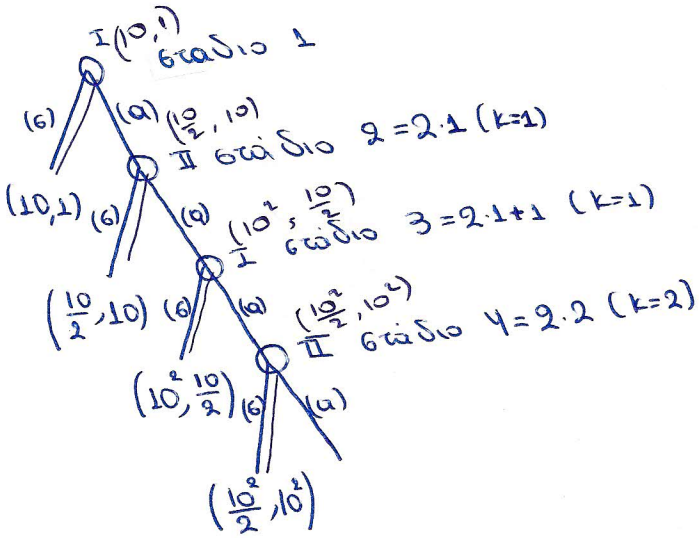 I (10,1) σταδιο 1
(σ) (α) (10/2, 10)
II στάδιο 2 = 2·1 (k=1)
(10,1) (σ) (α) (10², 10/2)
I στάδιο 3 = 2·1+1 (k=1)
(10/2, 10) (σ) (α) (10²/2, 10²)
II στάδιο 4 = 2·2 (k=2)
(10², 10/2) (σ) (α)
(10²/2, 10²)